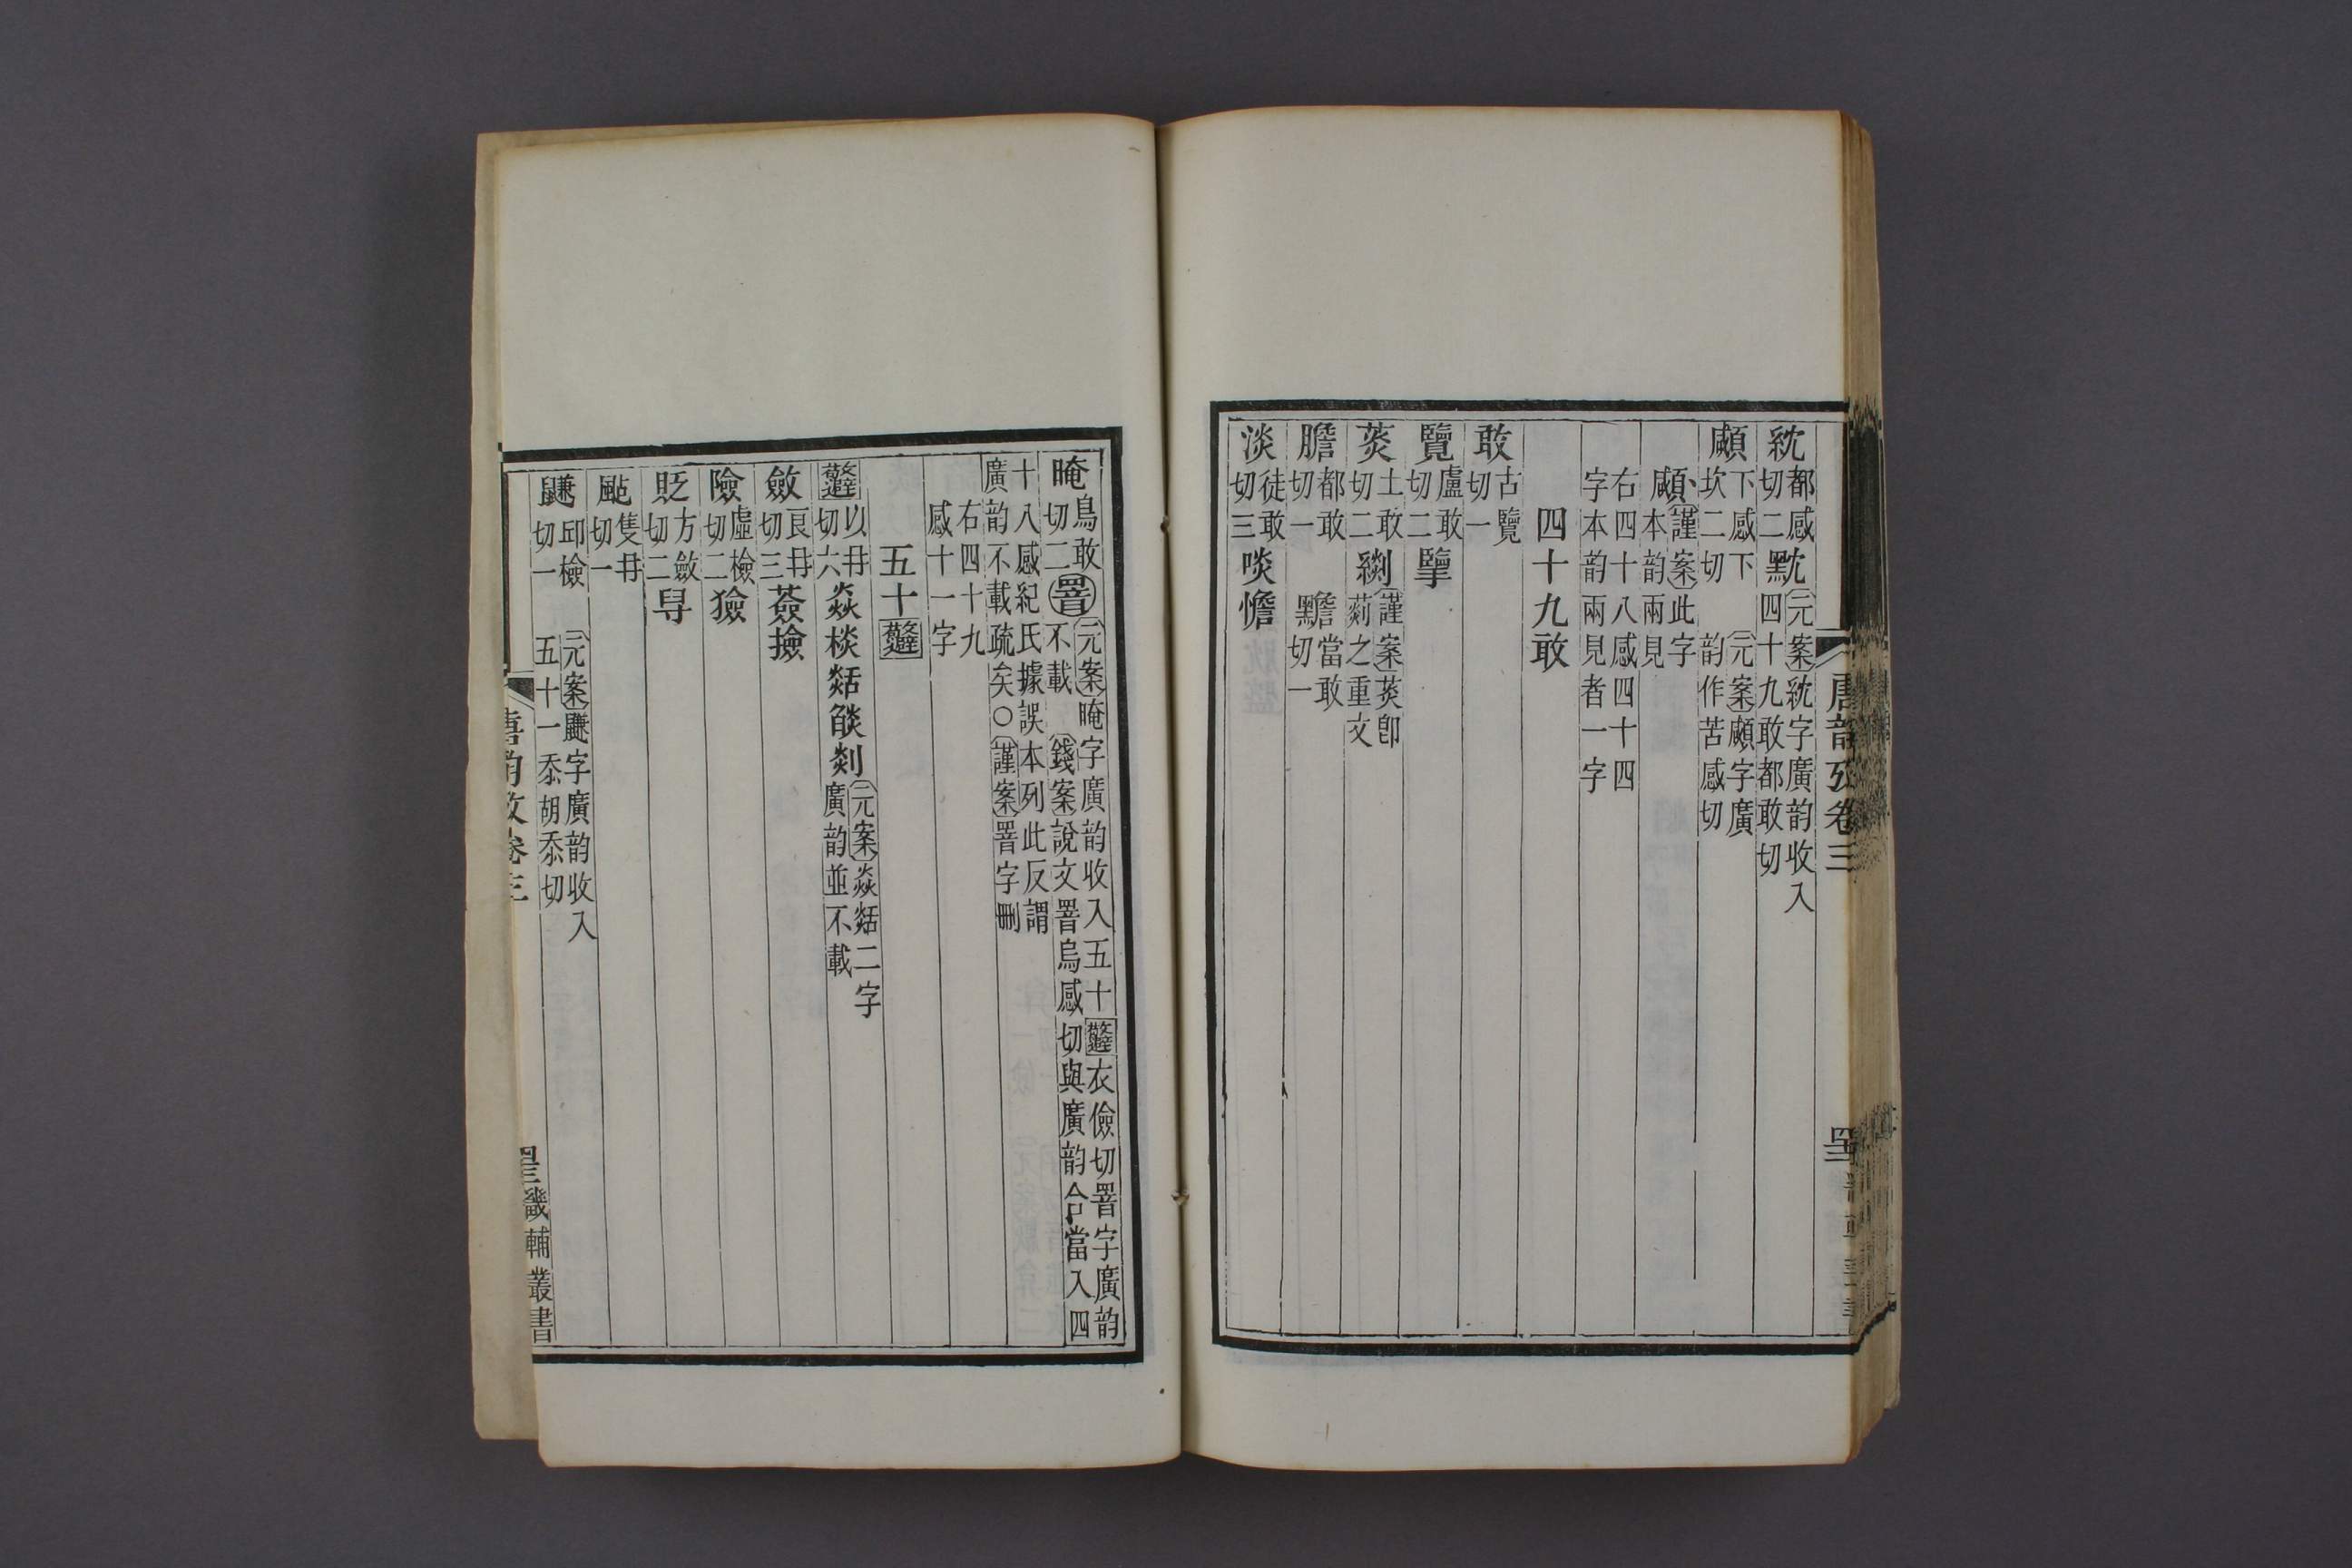 唐韵攷卷三
紞都感切二黕元案紞字廣韵收入四十九敢都敢切
顑下感下坎二切元案顑字廣韵作苦感切
謹案此字本韵兩見
右四十八感四十四字本韵兩見者一字
四十九敢
敢古覽切一
覽盧敢切二擥
菼土敢切二謹案菼卽𦸁之重文
膽都敢切一 黵當敢切一
淡徒敢切三啖憺
晻烏敢切二罯元案晻字廣韵收入五十衣儉切罯字廣韵不載 錢案說文罯烏感切與廣韵合當入四
十八感紀氏據誤本列此反謂廣韵不載疏矣○謹案罯字刪
右四十九感十一字
五十
以冉切六焱棪剡元案焱二字廣韵並不載
斂良冉切三薟撿
險虛檢切二獫
貶方斂切二𠭥
颭隻冉切一
鼸邱檢切一元案鼸字廣韵收入五十一忝胡忝切
唐韵攷卷三
畿輔叢書